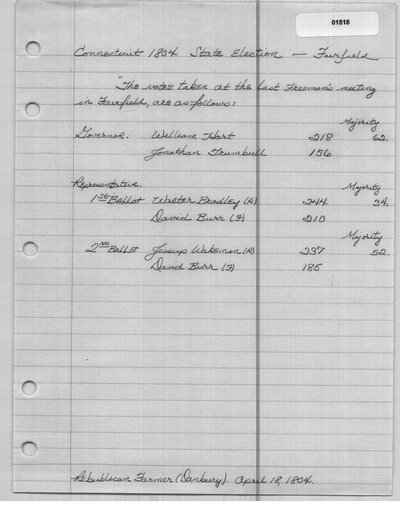 01516
Connecticut 1804 State Election — Fairfield
"The votes taken at the last Freeman's meeting
in Fairfield, are as follows:
Majority
Governor. William Hart 218 62.
Jonathan Trumbull 156
Representative. Majority
1st Ballot Walter Bradley (R) 244 34.
David Burr (F) 210
Majority
2nd Ballot Jessup Wakeman (R) 237 52.
David Burr (F) 185
Republican Farmer (Danbury). April 18, 1804.